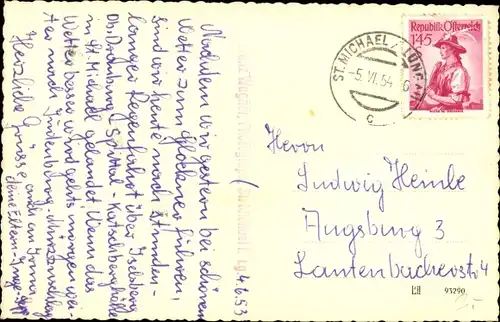 Nachdem wir gestern bei schönem
Wetter zum Glockner fuhren,
sind wir heute nach stunden-
langer Regenfahrt über Iselsberg
Ob. Drauburg - Spittal - Katschberghöhe
in St. Michael gelandet. Wenn das
Wetter besser wird gehts morgen wei-
ter nach Judenburg - Mürzzuschlag
Herzliche Grüsse, auch an Irma
deine Eltern
4.6.53
Republik Österreich
1.45
ST. MICHAEL / LUNGAU
-5. VI. 54
c
Herrn
Ludwig Heinle
Augsburg 3
Lauterbacherstr 4
93290